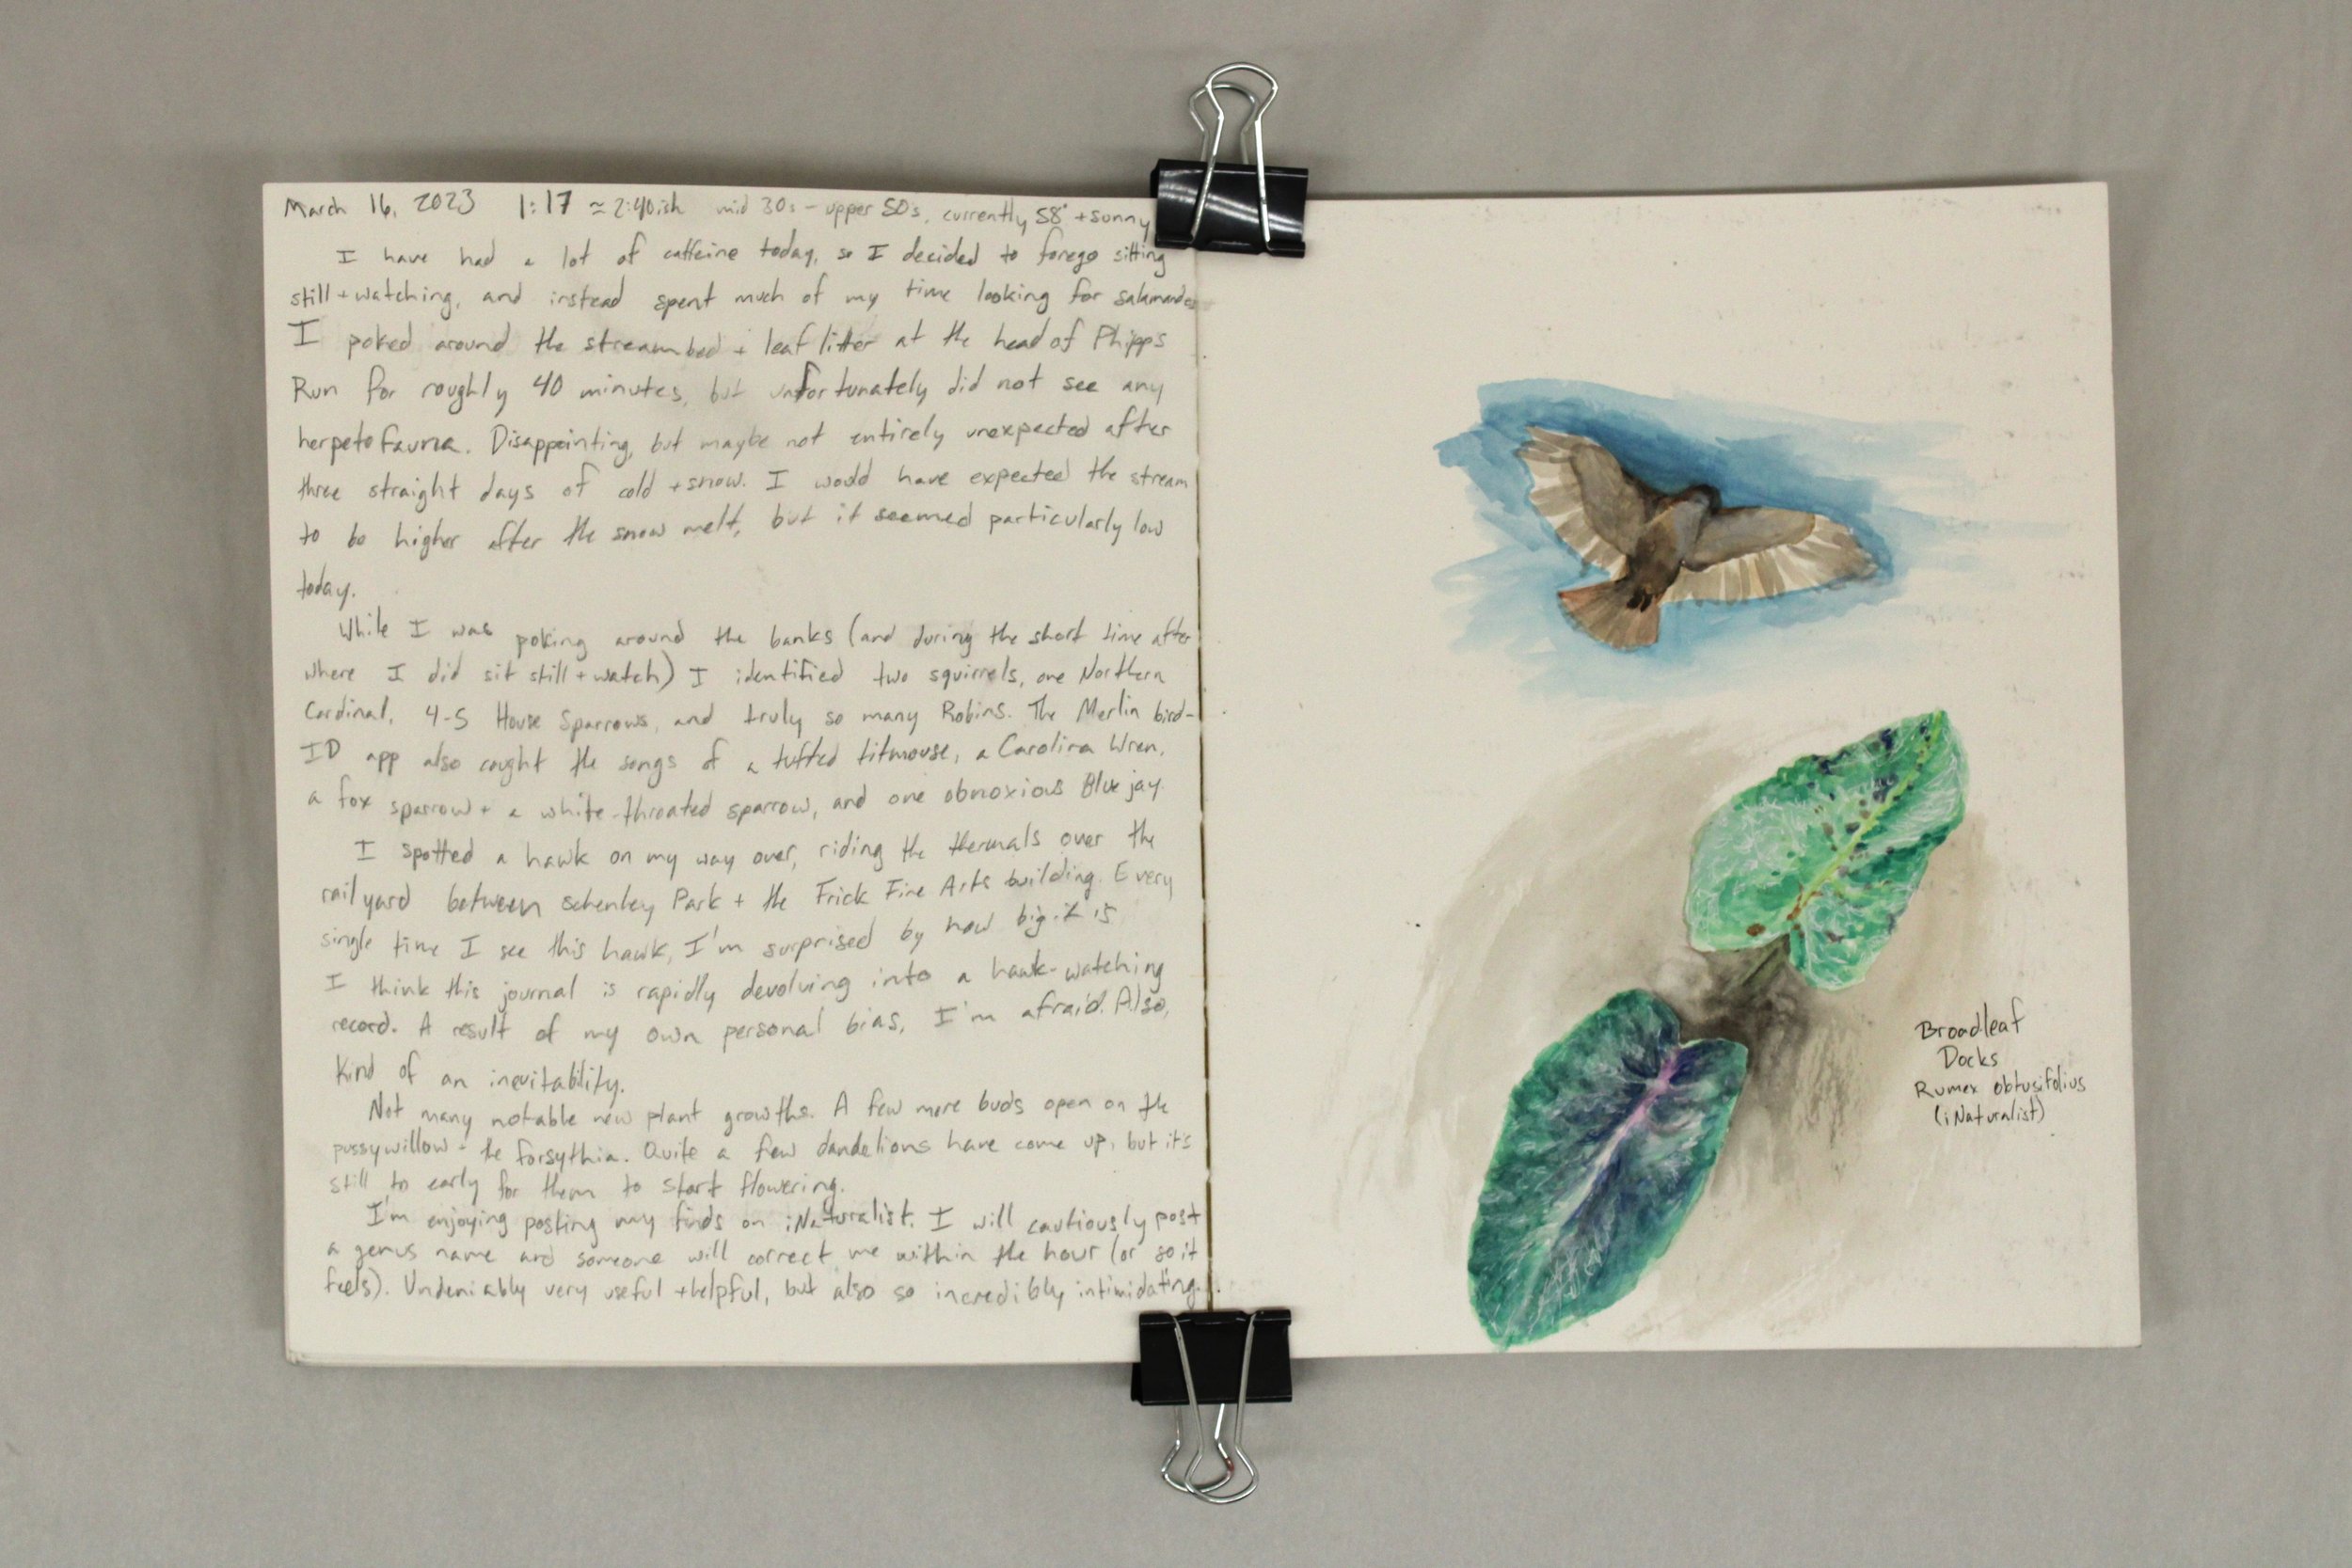 March 16, 2023 1:17 ≈ 2:40ish mid 30s - upper 50s, currently 58° + sunny
I have had a lot of caffeine today, so I decided to forego sitting
still + watching, and instead spent much of my time looking for salamanders
I poked around the streambed + leaf litter at the head of Phipps
Run for roughly 40 minutes, but unfortunately did not see any
herpetofauna. Disappointing, but maybe not entirely unexpected after
three straight days of cold + snow. I would have expected the stream
to be higher after the snow melt, but it seemed particularly low
today.
While I was poking around the banks (and during the short time after
where I did sit still + watch) I identified two squirrels, one Northern
Cardinal, 4-5 House Sparrows, and truly so many Robins. The Merlin bird-
ID app also caught the songs of a tufted titmouse, a Carolina Wren,
a fox sparrow + a white-throated sparrow, and one obnoxious Blue jay.
I spotted a hawk on my way over, riding the thermals over the
railyard between Schenley Park + the Frick Fine Arts building. Every
single time I see this hawk, I'm surprised by how big it is
I think this journal is rapidly devolving into a hawk-watching
record. A result of my own personal bias, I'm afraid. Also,
Kind of an inevitability.
Not many notable new plant growths. A few more buds open on the
pussywillow + the forsythia. Quite a few dandelions have come up, but it's
still to early for them to start flowering.
I'm enjoying posting my finds on iNaturalist. I will cautiously post
a genus name and someone will correct me within the hour (or so it
feels). Undeniably very useful + helpful, but also so incredibly intimidating.
Broadleaf
Docks
Rumex obtusifolius
(iNaturalist)